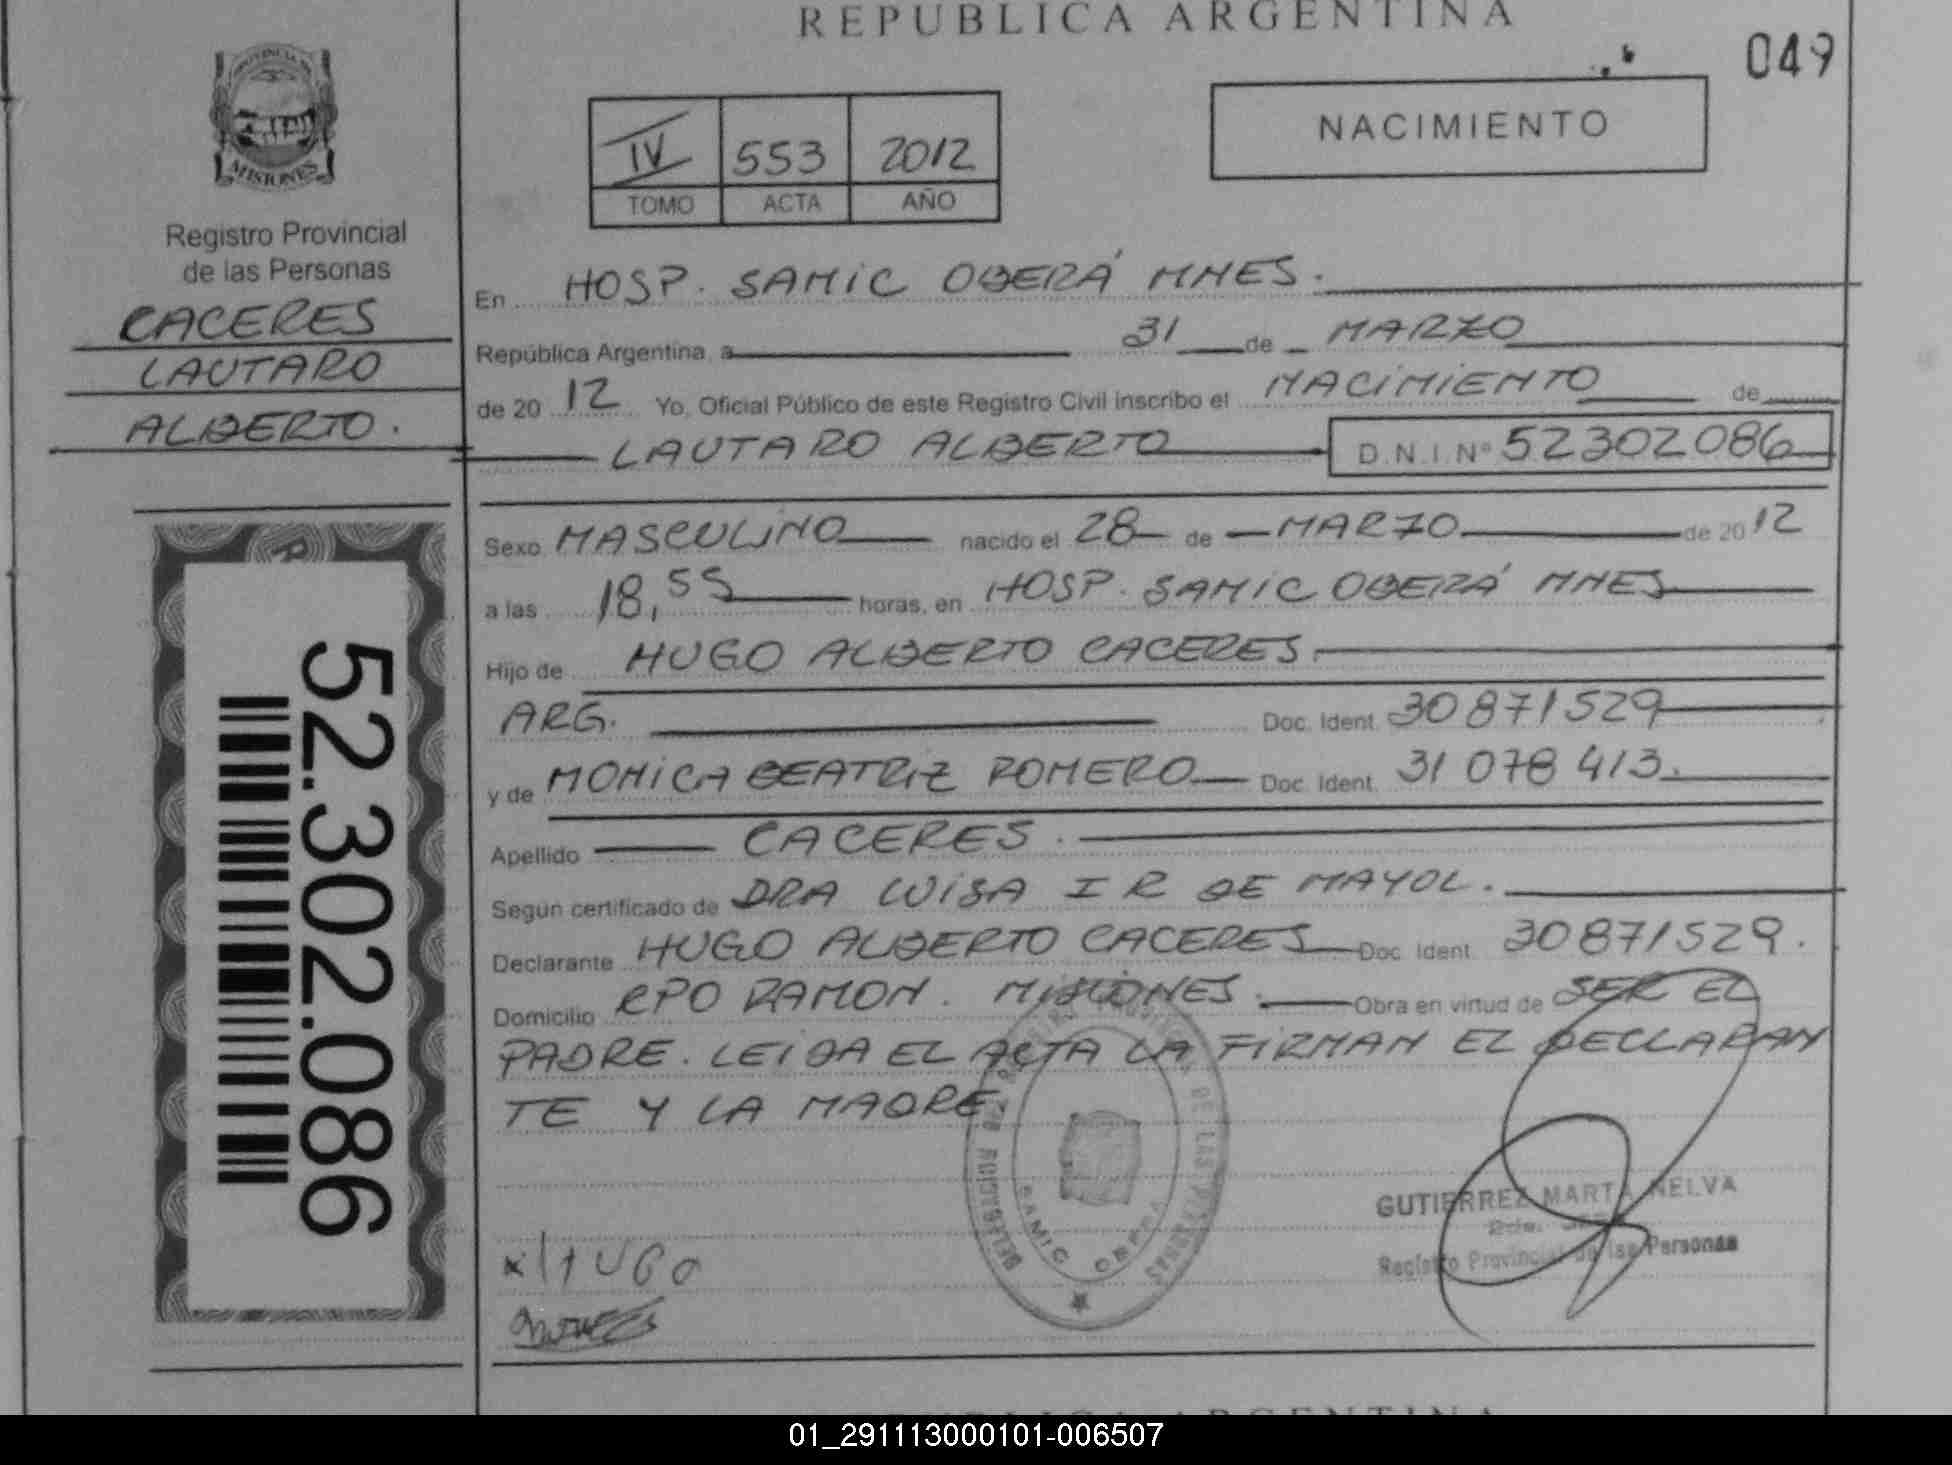 REPUBLICA ARGENTINA
049
PROVINCIA DE
MISIONES
Registro Provincial
de las Personas
CACERES
LAUTARO
ALBERTO.
52.302.086
IV 553 2012
TOMO ACTA AÑO
NACIMIENTO
En HOSP. SAMIC OBERÁ MNES.
República Argentina, a 31 de MARZO
de 2012 Yo, Oficial Público de este Registro Civil inscribo el NACIMIENTO de
LAUTARO ALBERTO D.N.I.Nº 52302086
Sexo MASCULINO nacido el 28 de MARZO de 2012
a las 18,55 horas, en HOSP. SAMIC OBERÁ MNES
Hijo de HUGO ALBERTO CACERES
ARG. Doc. Ident. 30871529
y de MONICA BEATRIZ ROMERO Doc. Ident. 31 078 413.
Apellido CACERES.
Según certificado de DRA LUISA I R DE MAYOL.
Declarante HUGO ALBERTO CACERES Doc. Ident. 30871529.
Domicilio CPO RAMON. MISIONES. Obra en virtud de SER EL
PADRE. LEIDA EL ACTA LA FIRMAN EL DECLARAN
TE Y LA MADRE
REGISTRO PROVINCIAL DE LAS PERSONAS
SAMIC OBERA
GUTIERREZ MARTA NELVA
Registro Provincial de las Personas
x HUGO
01_291113000101-006507